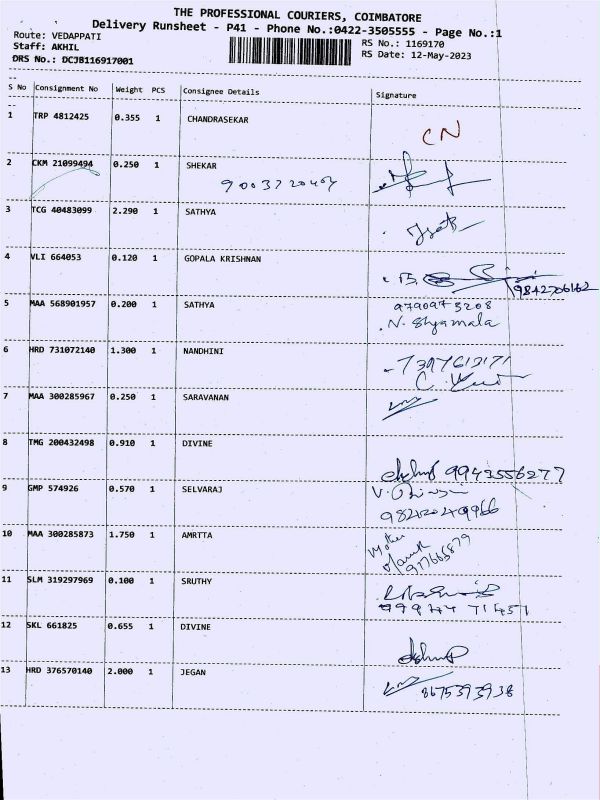 THE PROFESSIONAL COURIERS, COIMBATORE
Delivery Runsheet - P41 - Phone No.:0422-3505555 - Page No.:1
Route: VEDAPPATI RS No.: 1169170
Staff: AKHIL RS Date: 12-May-2023
DRS No.: DCJB116917001
S No Consignment No Weight PCS Consignee Details Signature
1 TRP 4812425 0.355 1 CHANDRASEKAR
CN
2 CKM 21099494 0.250 1 SHEKAR
3 TCG 40483099 2.290 1 SATHYA
4 VLI 664053 0.120 1 GOPALA KRISHNAN
9842706162
5 MAA 568901957 0.200 1 SATHYA 9790973208
N. Shyamala
6 HRD 731072140 1.300 1 NANDHINI
7 MAA 300285967 0.250 1 SARAVANAN
8 TMG 200432498 0.910 1 DIVINE
9943556277
9 GMP 574926 0.570 1 SELVARAJ
10 MAA 300285873 1.750 1 AMRTTA Mother
11 SLM 319297969 0.100 1 SRUTHY
12 SKL 661825 0.655 1 DIVINE
13 HRD 376570140 2.000 1 JEGAN
8675393938